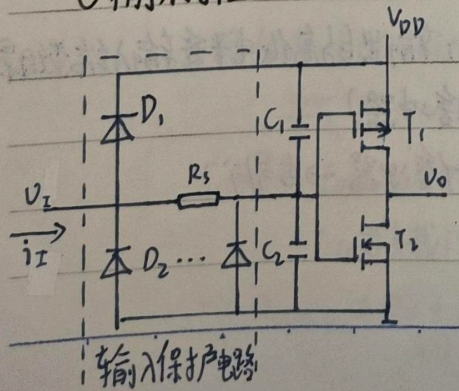 VDD
D₁
C₁
T₁
Rs
υI
υo
iI
D₂ ...
C₂
T₂
输入保护电路